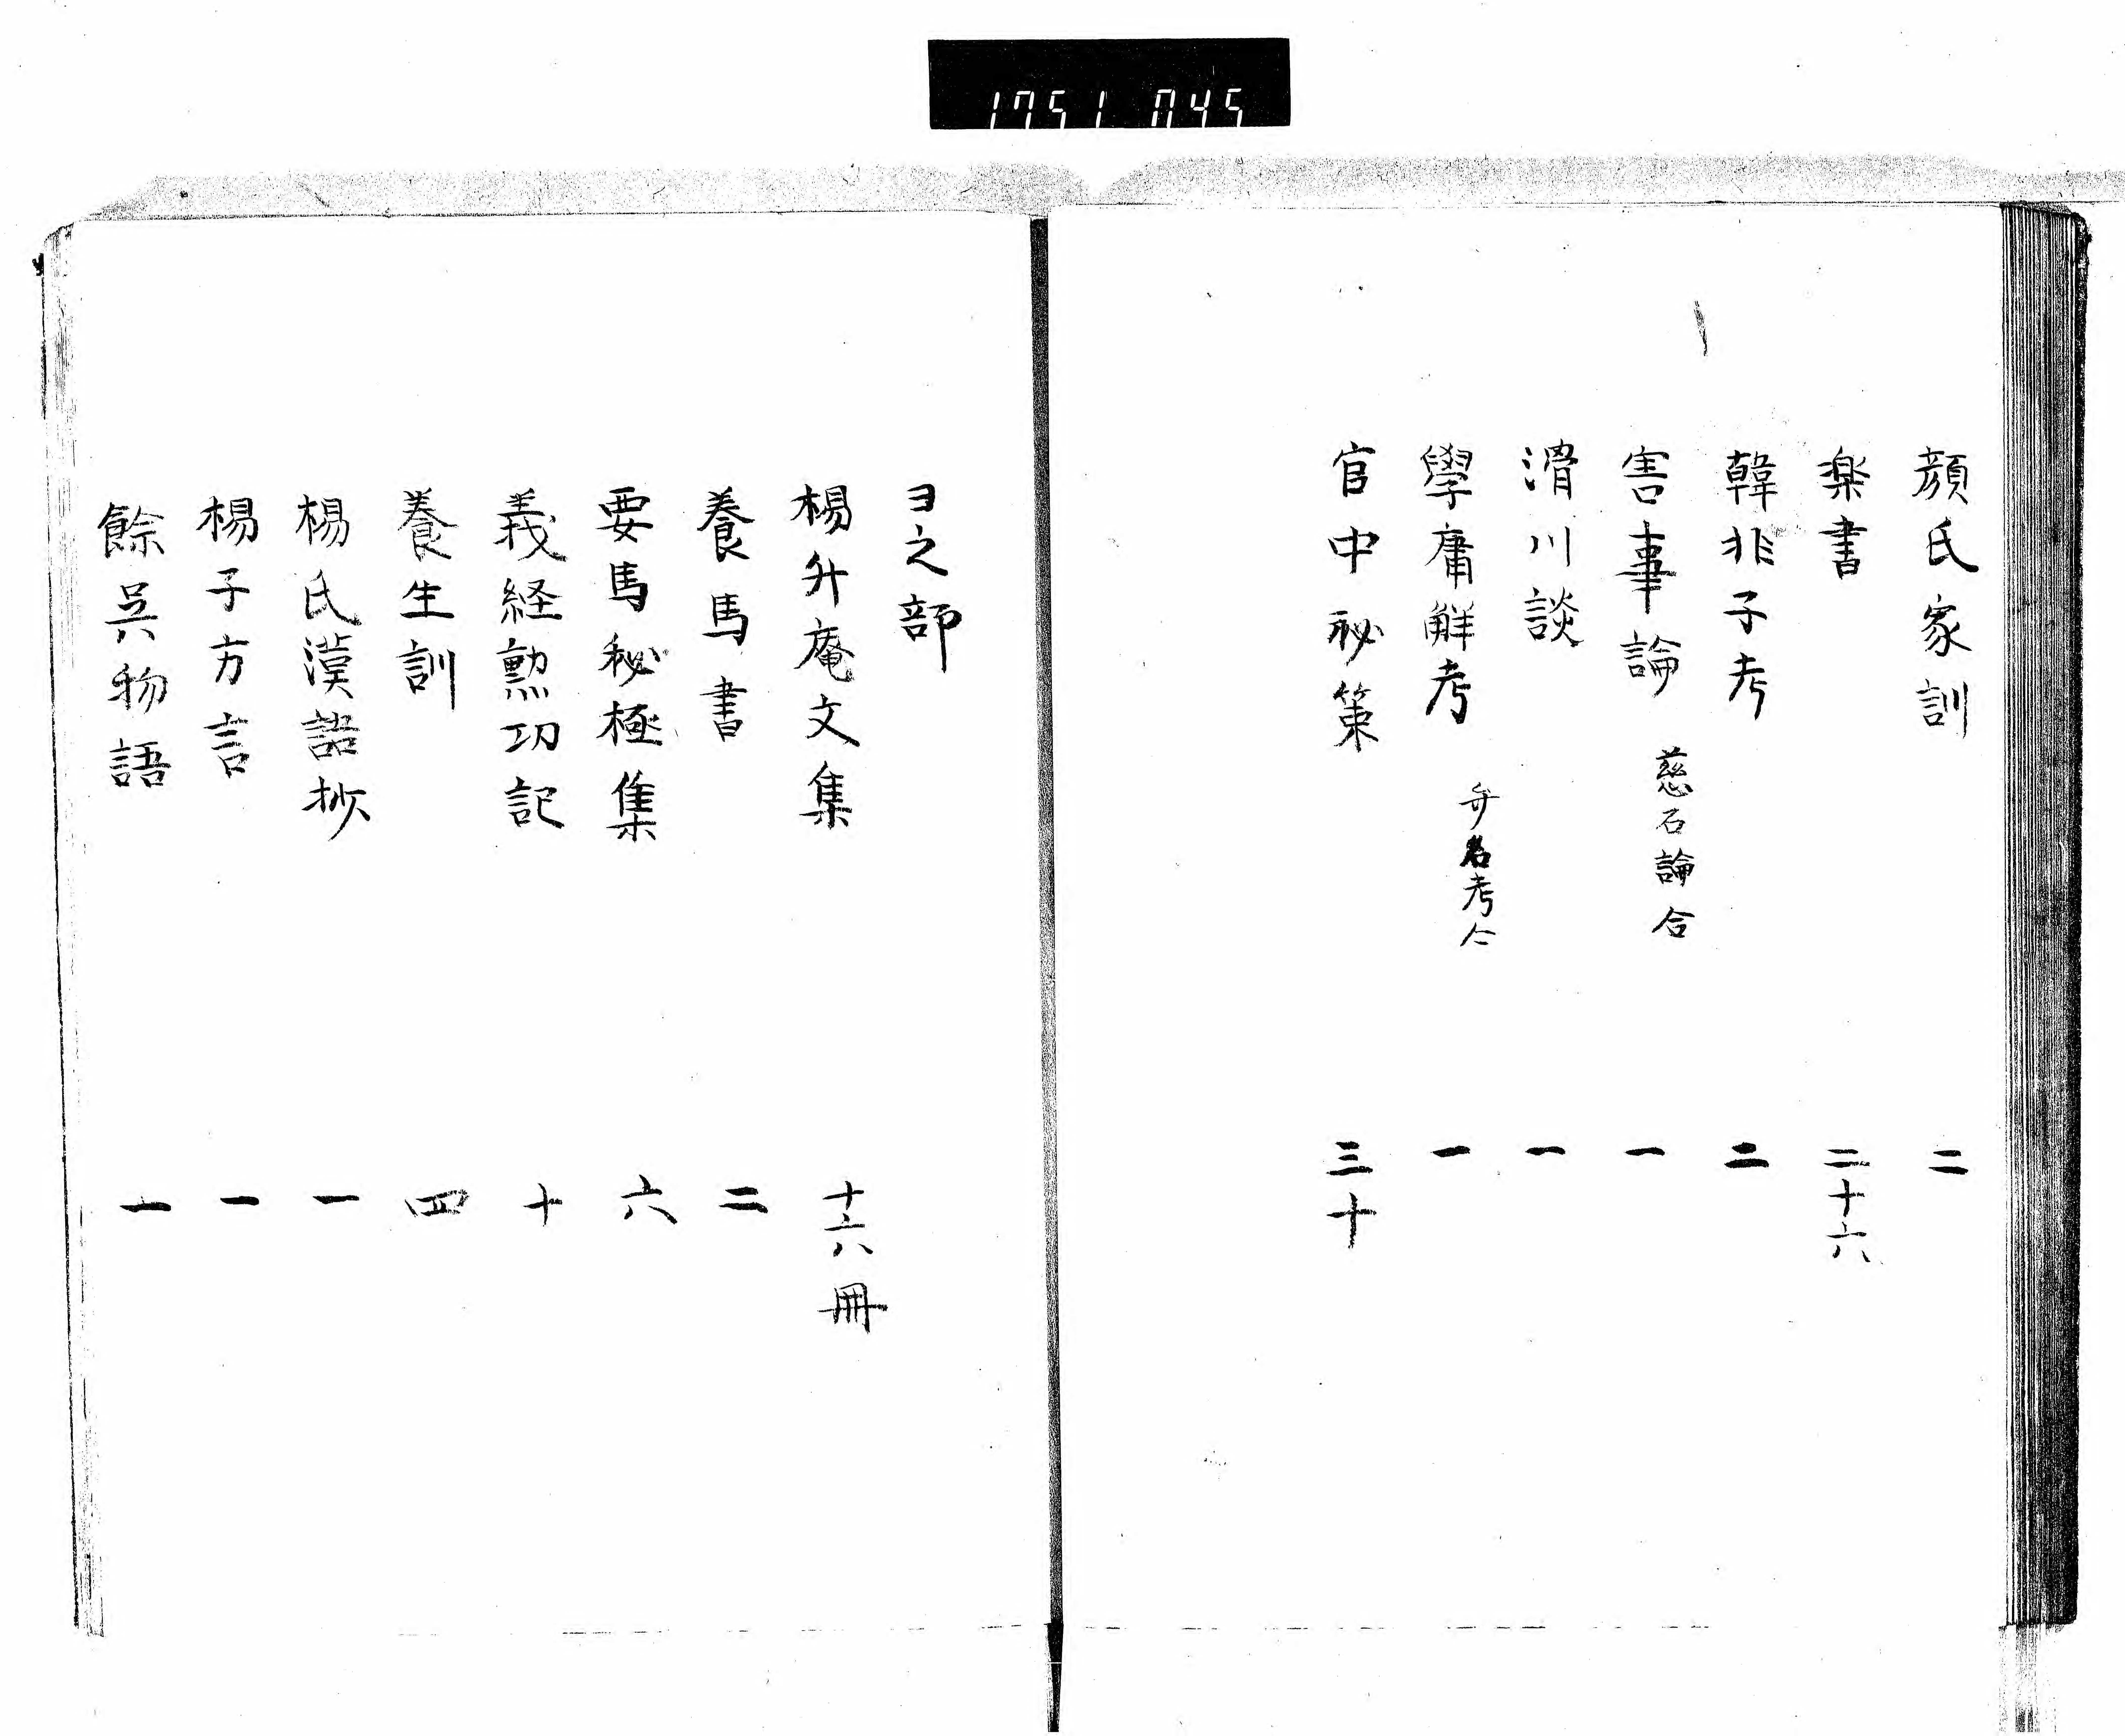 1751 045
顔氏家訓 二
楽書 二十六
韓非子考 二
害事論 慈石論合 一
滑川談 一
學庸解考 弁名考仝 一
官中秘策 三十
ヨ之部
楊升庵文集 十六冊
養馬書 二
要馬秘極集 六
義経勲功記 十
養生訓 四
楊氏漢語抄 一
楊子方言 一
餘呉物語 一